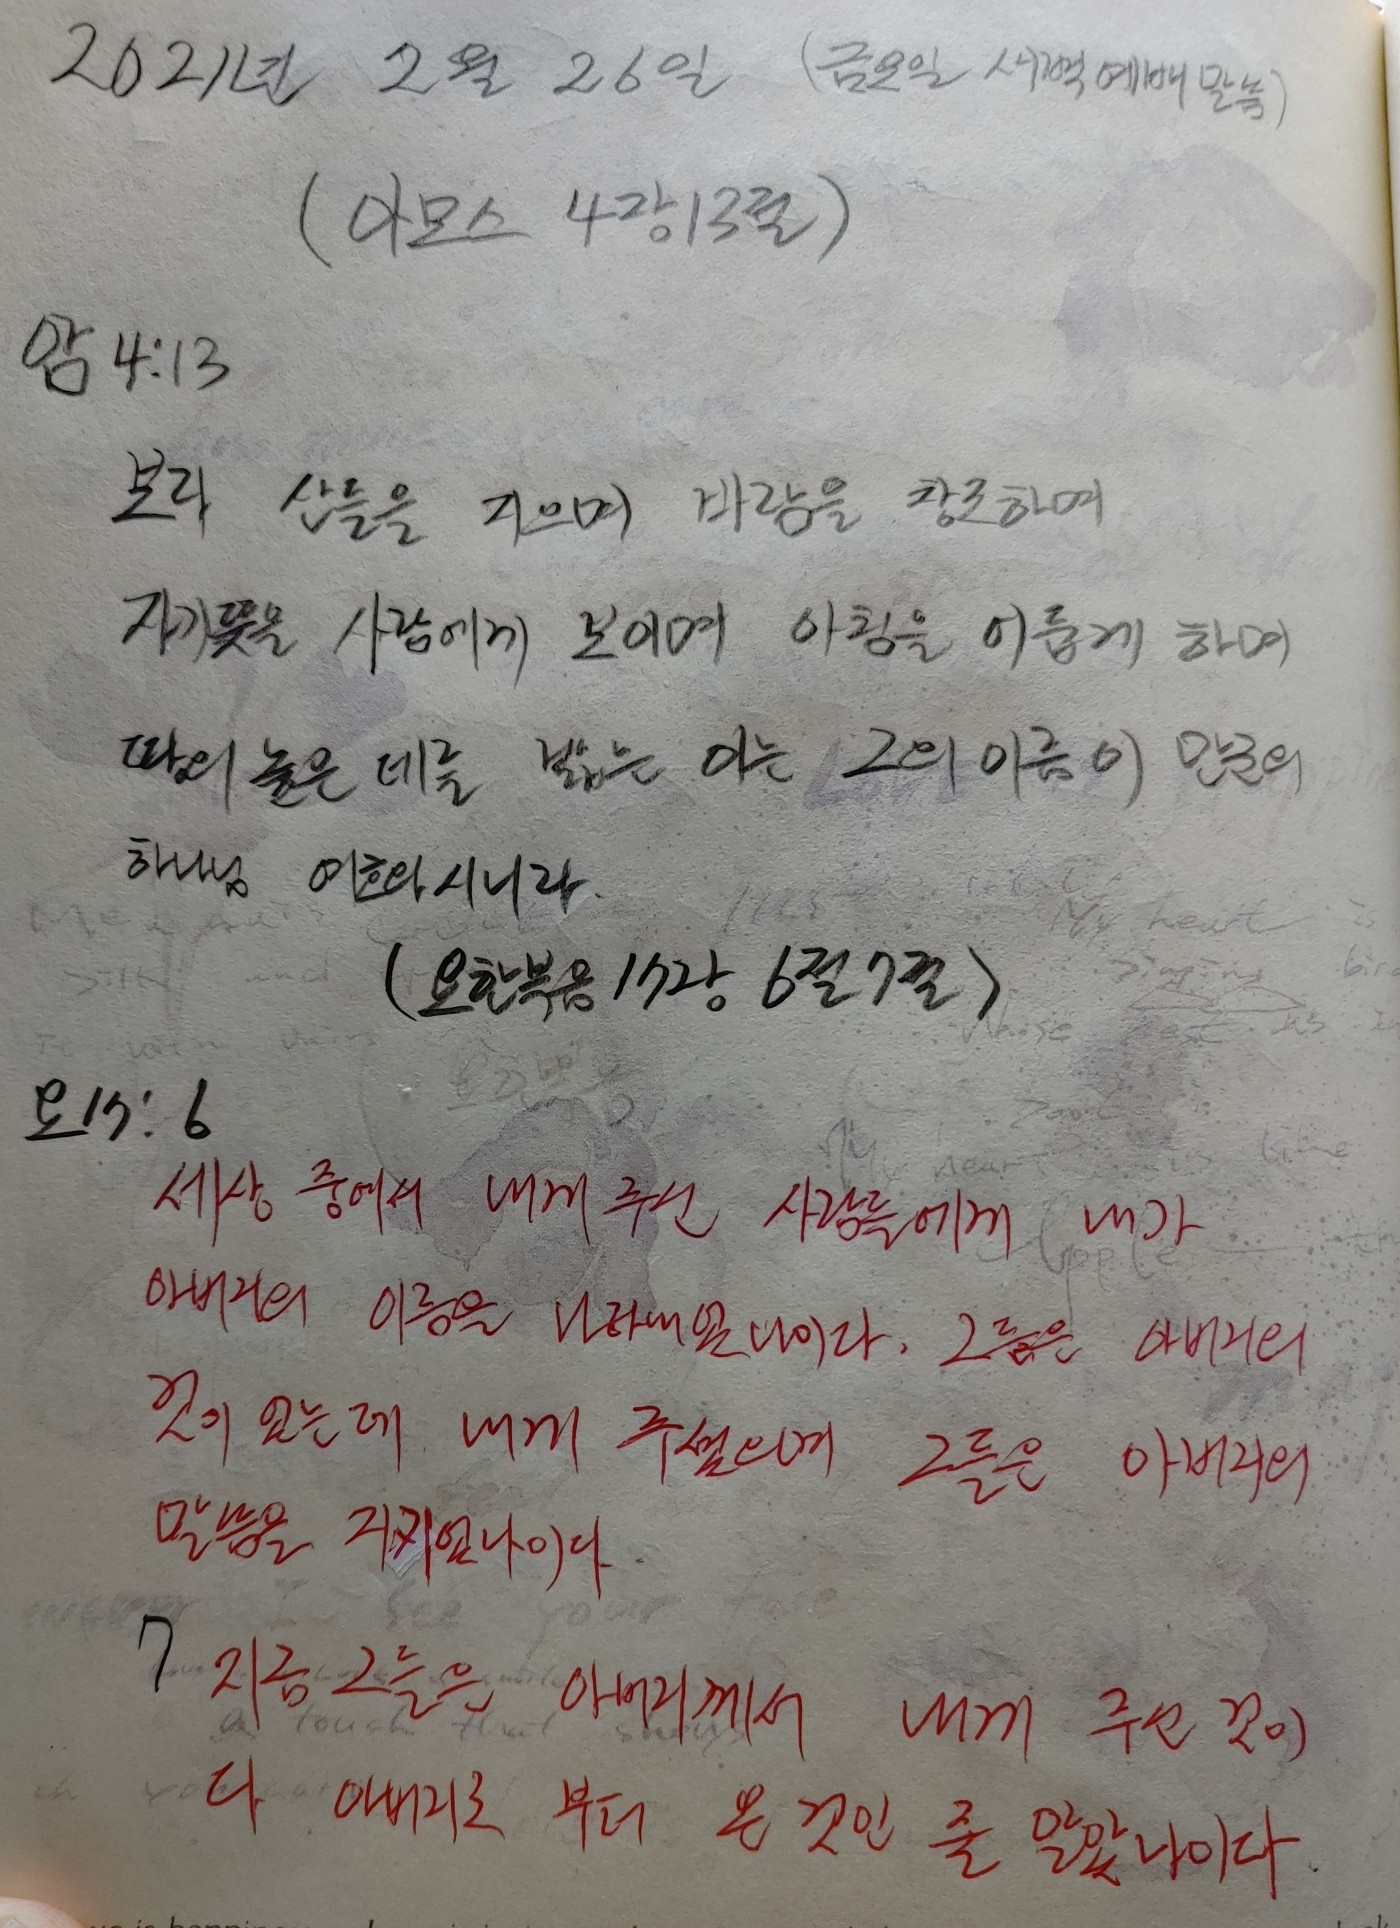 2021년 2월 26일 (금요일 새벽예배 말씀)
(아모스 4장13절)
암 4:13
보라 산들을 지으며 바람을 창조하며
자기 뜻을 사람에게 보이며 아침을 어둡게 하며
땅의 높은 데를 밟는 이는 그의 이름이 만군의
하나님 여호와시니라.
(요한복음 17장 6절 7절)
요 17:6
세상 중에서 내게 주신 사람들에게 내가
아버지의 이름을 나타내었나이다. 그들은 아버지의
것이었는데 내게 주셨으며 그들은 아버지의
말씀을 지키었나이다.
7 지금 그들은 아버지께서 내게 주신 것이
다 아버지로 부터 온 것인 줄 알았나이다.
My heart is
Singing bird
I see your face
a touch that